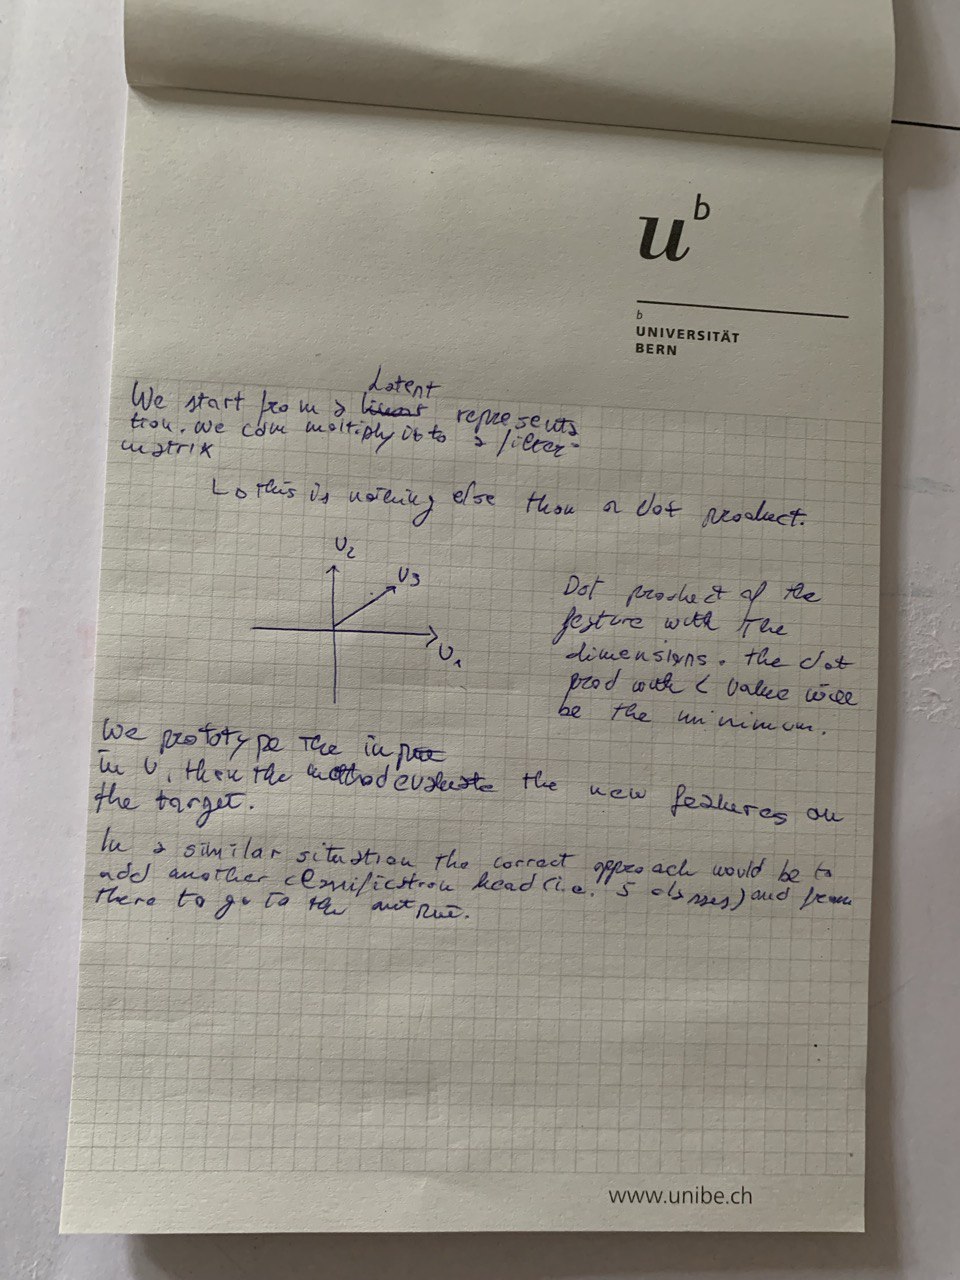 u
b
b
UNIVERSITÄT
BERN
Latent
We start from a linear represents
tion. We can moltiply it to a filter-
matrix
↳ this is nothing else than a dot product.
U₂
U₃
U₁
Dot product of the
feature with the
dimensions. the dot
prod with < value will
be the minimum.
We prototype the input
in U, then the method evaluate the new features on
the target.
In a similar situation the correct approach would be to
add another classification head (i.e. 5 classes) and from
there to go to the output.
www.unibe.ch